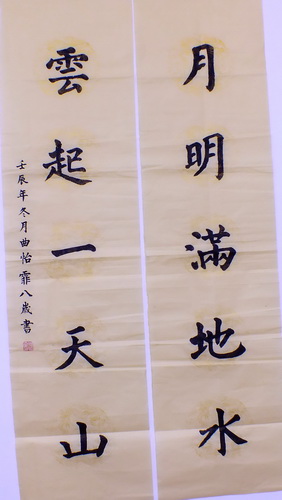 月明滿地水
雲起一天山
壬辰年冬月曲怡霏八歲書